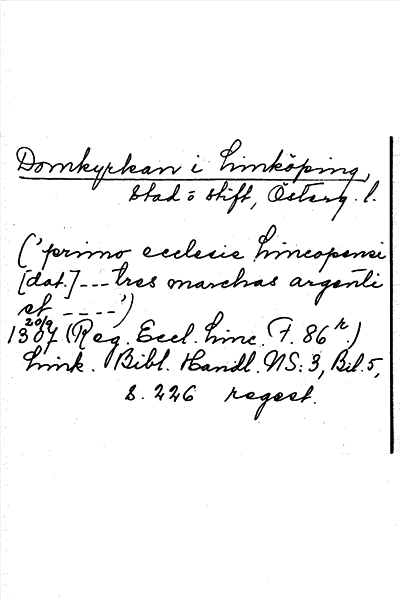 Domkyrkan i Linköping,
stad o stift, Österg. l.
('primo ecclesie Lincopensi
[dat.] --- tres marchas argenti
et ----')
20/9
1307 (Reg. Eccl. Linc. F. 86 r.)
Link. Bibl. Handl. NS: 3, Bil. 5,
s. 226 regest.